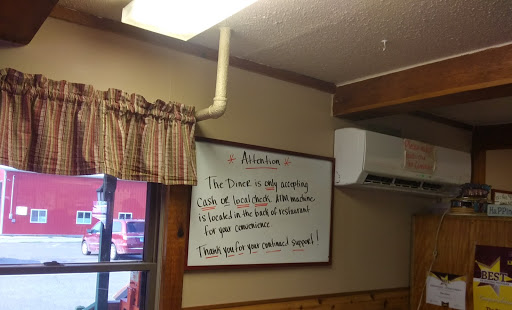 * Attention *
The Diner is only accepting
Cash or local check. ATM machine
is located in the back of restaurant
for your convenience.
Thank you for your continued support!
BEST